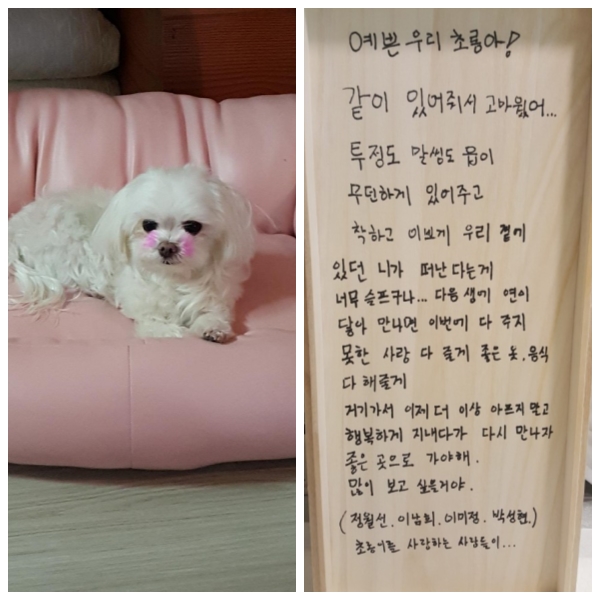 예쁜 우리 초롱아!
같이 있어줘서 고마웠어...
투정도 말썽도 없이
무던하게 있어주고
착하고 이쁘게 우리 곁에
있던 니가 떠난다는게
너무 슬프구나... 다음 생에 연이
닿아 만나면 이번에 다 주지
못한 사랑 다 줄게 좋은 옷, 음식
다 해줄게
거기가서 이제 더 이상 아프지 말고
행복하게 지내다가 다시 만나자
좋은 곳으로 가야해.
많이 보고 싶을거야.
(정월선. 이남희. 이미정. 박성현.)
초롱이를 사랑하는 사람들이...